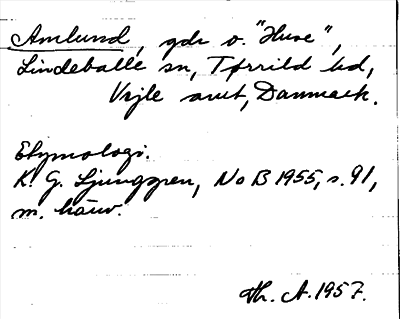 Amlund, gdr o. "Huse",
Lindeballe sn, Tørrild hd,
Vejle amt, Danmark.
Etymologi.
K. G. Ljunggren, NoB 1955, s. 91,
m. hänv.
Th. A. 1957.